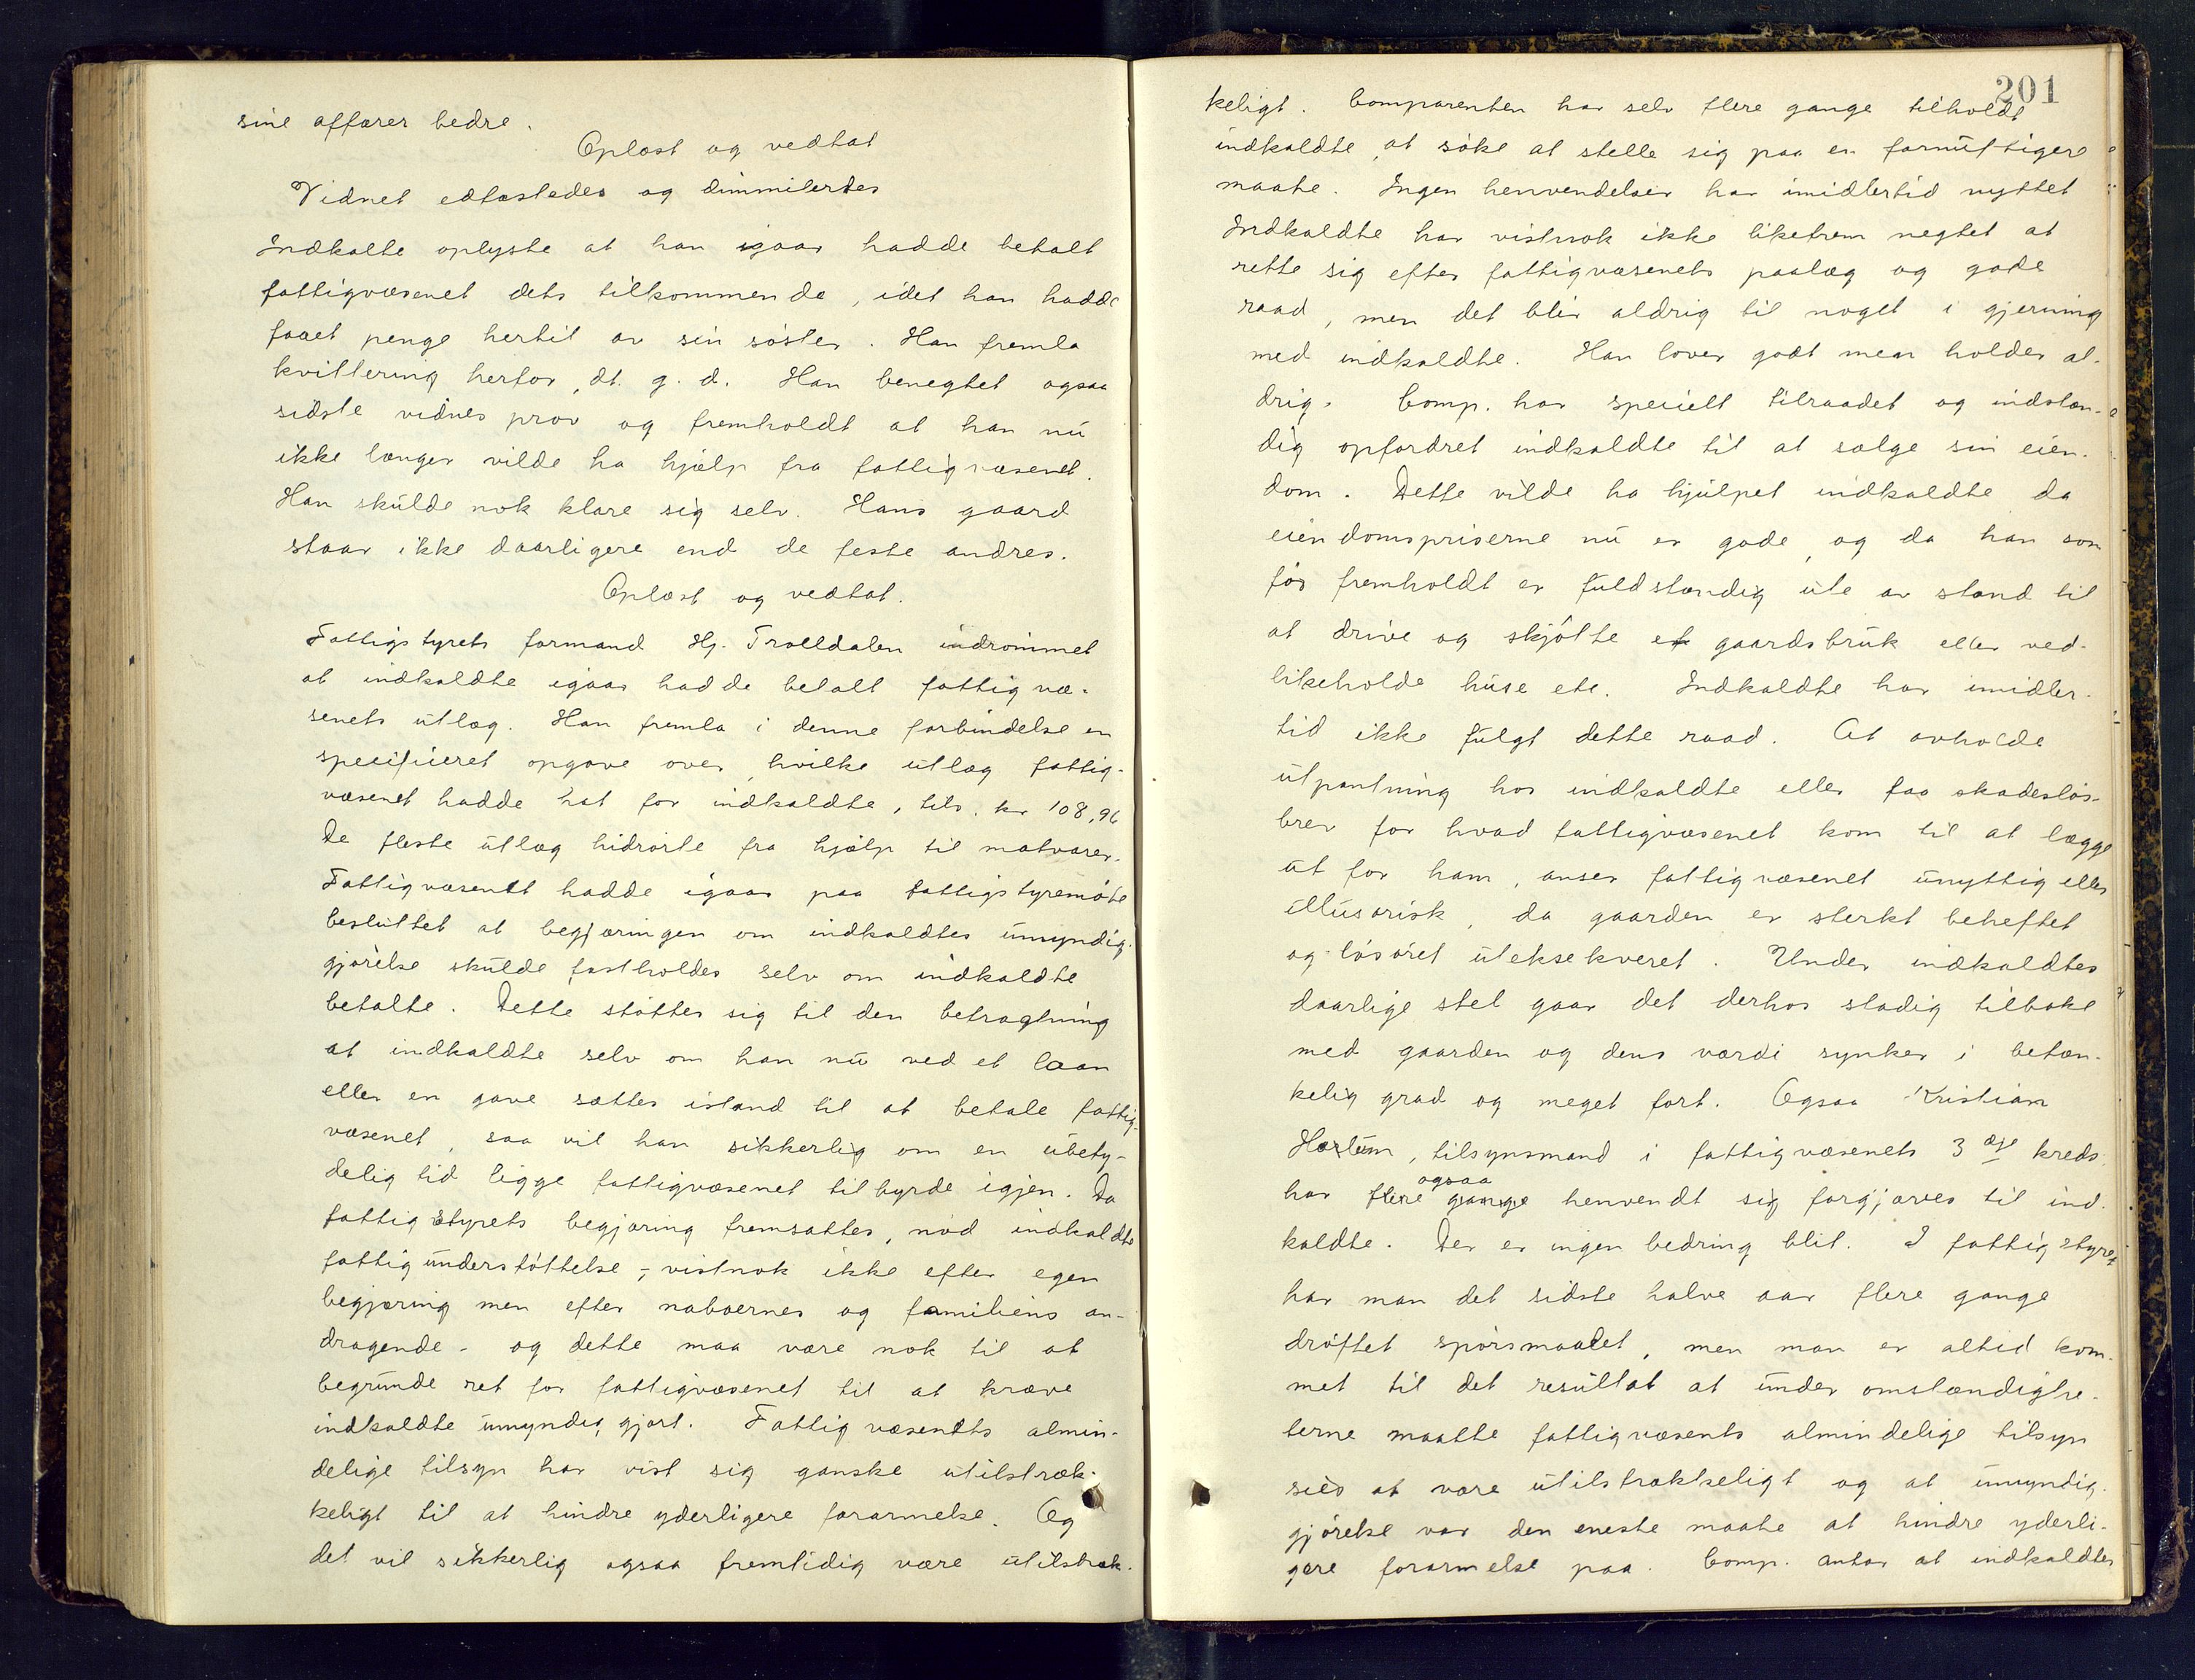 sine affærer bedre.
Oplæst og vedtat
Vidnet edfæstedes og dimmitertes
Indkalte oplyste at han igaar hadde betalt
fattigvæsenet dets tilkommende, idet han hadde
faaet penge hertil av sin søster. Han fremla
kvittering herfor, dt. g. d. Han benegtet ogsaa
sidste vidnes prov og fremholdt at han nu
ikke længer vilde ha hjælp fra fattigvæsenet.
Han skulde nok klare sig selv. Hans gaard
staar ikke daarligere end de feste andres.
Oplæst og vedtat.
Fattigstyrets formand Hj. Trolldalen indrømmet
at indkaldte igaar hadde betalt fattigvæ-
senets utlæg. Han fremla i denne forbindelse en
specificeret opgave over, hvilke utlæg fattig-
væsenet hadde hat for indkaldte, tils. kr 108,96
De fleste utlæg hidrørte fra hjælp til matvarer.
Fattigvæsenet hadde igaar paa fattigstyremøte
besluttet at begjæringen om indkaldtes umyndig-
gjørelse skulde fastholdes selv om indkaldte
betalte. Dette støttes sig til den betragtning
at indkaldte selv om han nu ved et laan
eller en gave sættes istand til at betale fattig-
væsenet, saa vil han sikkerlig om en ubety-
delig tid ligge fattigvæsenet til byrde igjen. Da
fattigstyrets begjæring fremsattes, nød indkaldte
fattigunderstøttelse, - vistnok ikke efter egen
begjæring men efter naboernes og familiens an-
dragende - og dette maa være nok til at
begrunde ret for fattigvæsenet til at kræve
indkaldte umyndiggjort. Fattigvæsenets almin-
delige tilsyn har vist sig ganske utilstræk-
keligt til at hindre yderligere forarmelse. Og
det vil sikkerlig ogsaa fremtidig være utilstræk-
201
keligt. Comparenten har selv flere gange tilholdt
indkaldte, at søke at stelle sig paa en fornuftigere
maate. Ingen henvendelser har imidlertid nyttet
Indkaldte har vistnok ikke liketrem negtet at
rette sig efter fattigvæsenets paalæg og gode
raad, men det blir aldrig til noget i gjerning
med indkaldte. Han lover godt men holder al-
drig. Comp. har specielt tilraadet og indstæn-
dig opfordret indkaldte til at sælge sin eien-
dom. Dette vilde ha hjulpet indkaldte da
eiendomspriserne nu er gode, og da han som
før fremholdt er fuldstændig ute av stand til
at drive og skjøtte et gaardsbruk eller ved-
likeholde huse etc. Indkaldte har imidler-
tid ikke fulgt dette raad. At avholde
utpantning hos indkaldte eller faa skadesløs-
brev for hvad fattigvæsenet kom til at lægge
ut for ham, anser fattigvæsenet unyttig eller
illusorisk, da gaarden er sterkt beheftet
og løsøret uteksekveret. Under indkaldtes
daarlige stel gaar det derhos stadig tilbake
med gaarden og dens værdi synker i betæn-
kelig grad og meget fort. Ogsaa Kristian
Horlum, tilsynsmand i fattigvæsenets 3 dje kreds
ogsaa
har flere gange henvendt sig forgjæves til ind-
kaldte. Der er ingen bedring blit. I fattigstyret
har man det sidste halve aar flere gange
drøftet spørsmaalet, men man er altid kom-
met til det resultat at under omstændighe-
terne maatte fattigvæsents almindelige tilsyn
sies at være utilstrækkeligt og at umyndig-
gjørelse var den eneste maate at hindre yderli-
gere forarmelse paa. Comp. antar at indkaldtes